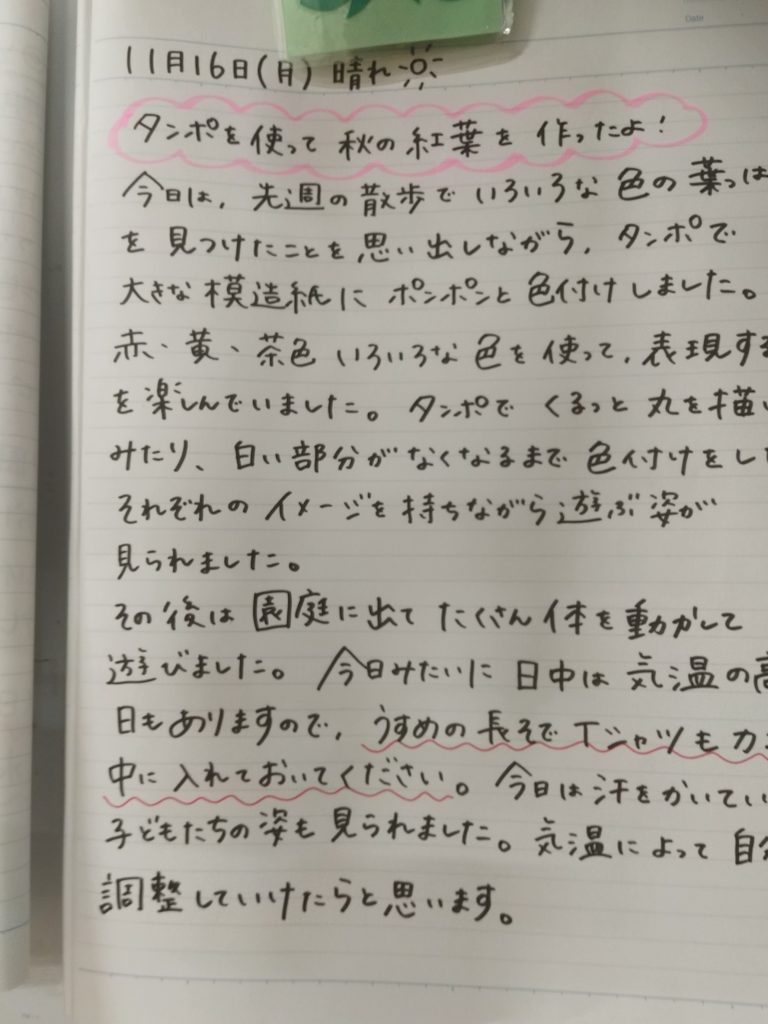 Date
11月16日(月) 晴れ
タンポを使って 秋の紅葉を 作ったよ!
今日は、先週の散歩で いろいろな 色の 葉っぱ
を 見つけたことを 思い出しながら、タンポで
大きな 模造紙に ポンポンと 色付けしました。
赤・黄・茶色 いろいろな 色を 使って、表現する
を楽しんでいました。タンポで くるっと 丸を描い
みたり、白い部分が なくなるまで 色付けをし
それぞれの イメージを 持ちながら 遊ぶ 姿が
見られました。
その後は 園庭に出て たくさん 体を動かして
遊びました。今日みたいに 日中は 気温の高
日もありますので、うすめの 長そで Tシャツも カ
中に 入れておいてください。今日は 汗をかいてい
子どもたちの 姿も 見られました。気温によって 自分
調整していけたらと思います。